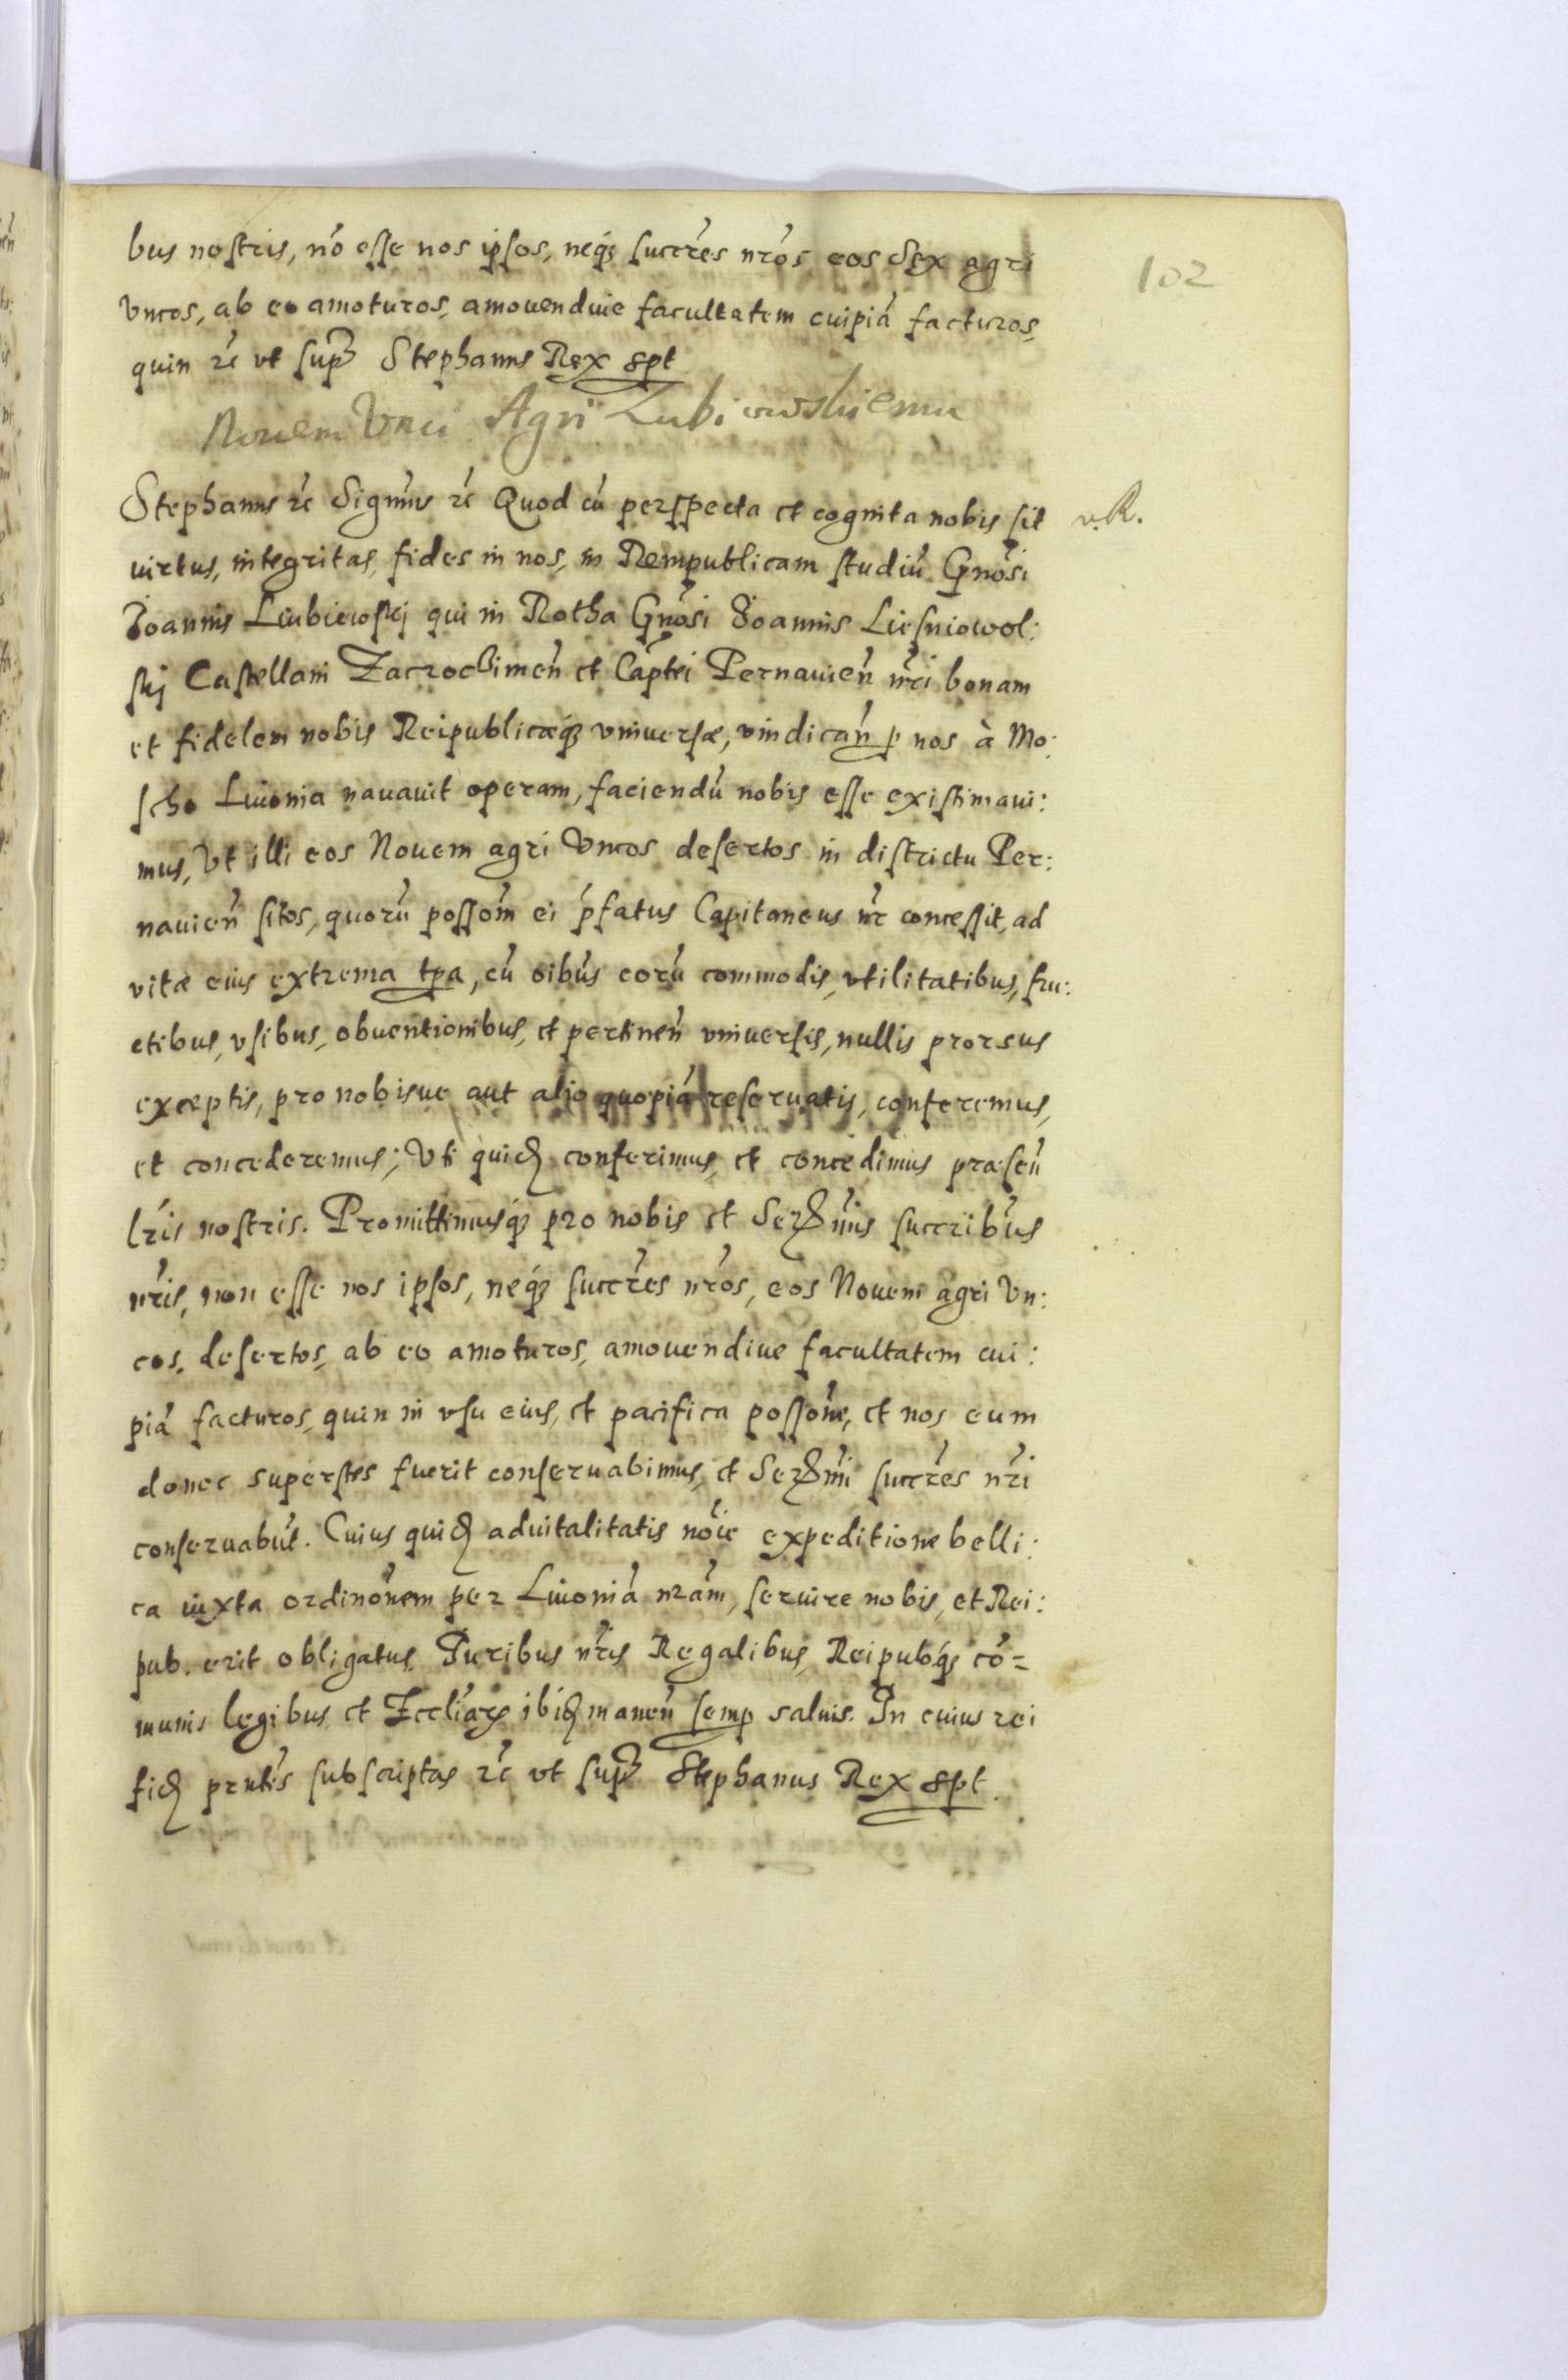 bus nostris, nõ esse nos ipsos, neq́ꝫ succr̃es nr̃os eos Sex agri
102
Vncos, ab eo amoturos, amouendiue facultatem cuipiã facturos,
quin rc̃ vt sup̃ Stephanus Rex sp̃t
Nouem Vnci Agri Lubiowskiemu
Stephanus rc̃ Signm̃us rc̃ Quod cũ perspecta et cognita nobis sit
v. R.
virtus, integritas, fides in nos, in Rempublicam studiũ Gnõsi
Joannis Liubiewskj qui in Rotha Gnõsi Joannis Liesniowol:
skj Castellani Zacrocßimeñ et Capt̃ei Pernauieñ nr̃i bonam
et fidelem nobis Reipublicæq́ꝫ vniuersæ, vindicañ p nos à Mo:
scho Liuonia nauauit operam, faciendũ nobis esse existimaui:
mus, Vt illi eos Nouem agri Vncos desertos in districtu Per:
nauieñ sitos, quorũ possõm ei p̃fatus Capitaneus nr̃ concessit, ad
vitæ eius extrema tp̃a, cũ oĩbus eorũ commodis, vtilitatibus, fru:
ctibus, vsibus, obuentionibus, et pertineñ vniuersis, nullis prorsus
exceptis, pro nobisue aut alio quopiã reseruatis, conferemus,
et concederemus; Vti quidꝫ conferimus, et concedimus præseñ
lr̃is nostris. Promittimusq́ꝫ pro nobis et Serm̃is succrĩbus
nr̃is, non esse nos ipsos, neq́ꝫ succr̃es nr̃os, eos Nouem agri Vn:
cos, desertos, ab eo amoturos, amouendiue facultatem cui:
piã facturos, quin in vsu eius, et pacifica possõne, et nos eum
donec superstes fuerit conseruabimus, et Serm̃i succr̃es nr̃i
conseruabũt. Cuius quidꝫ aduitalitatis nõie expeditione belli:
ca iuxta ordinõnem per Liuoniã nr̃am, seruire nobis, et Rei:
pub. erit obligatus. Juribus nr̃is Regalibus, Reipubq́ꝫ cõ=
munis legibus, et Eccliãrꝫ ibidꝫ maneñ semp saluis. In cuius rei
fidꝫ prñtes subscriptas rc̃ vt sup̃ Stephanus Rex sp̃t